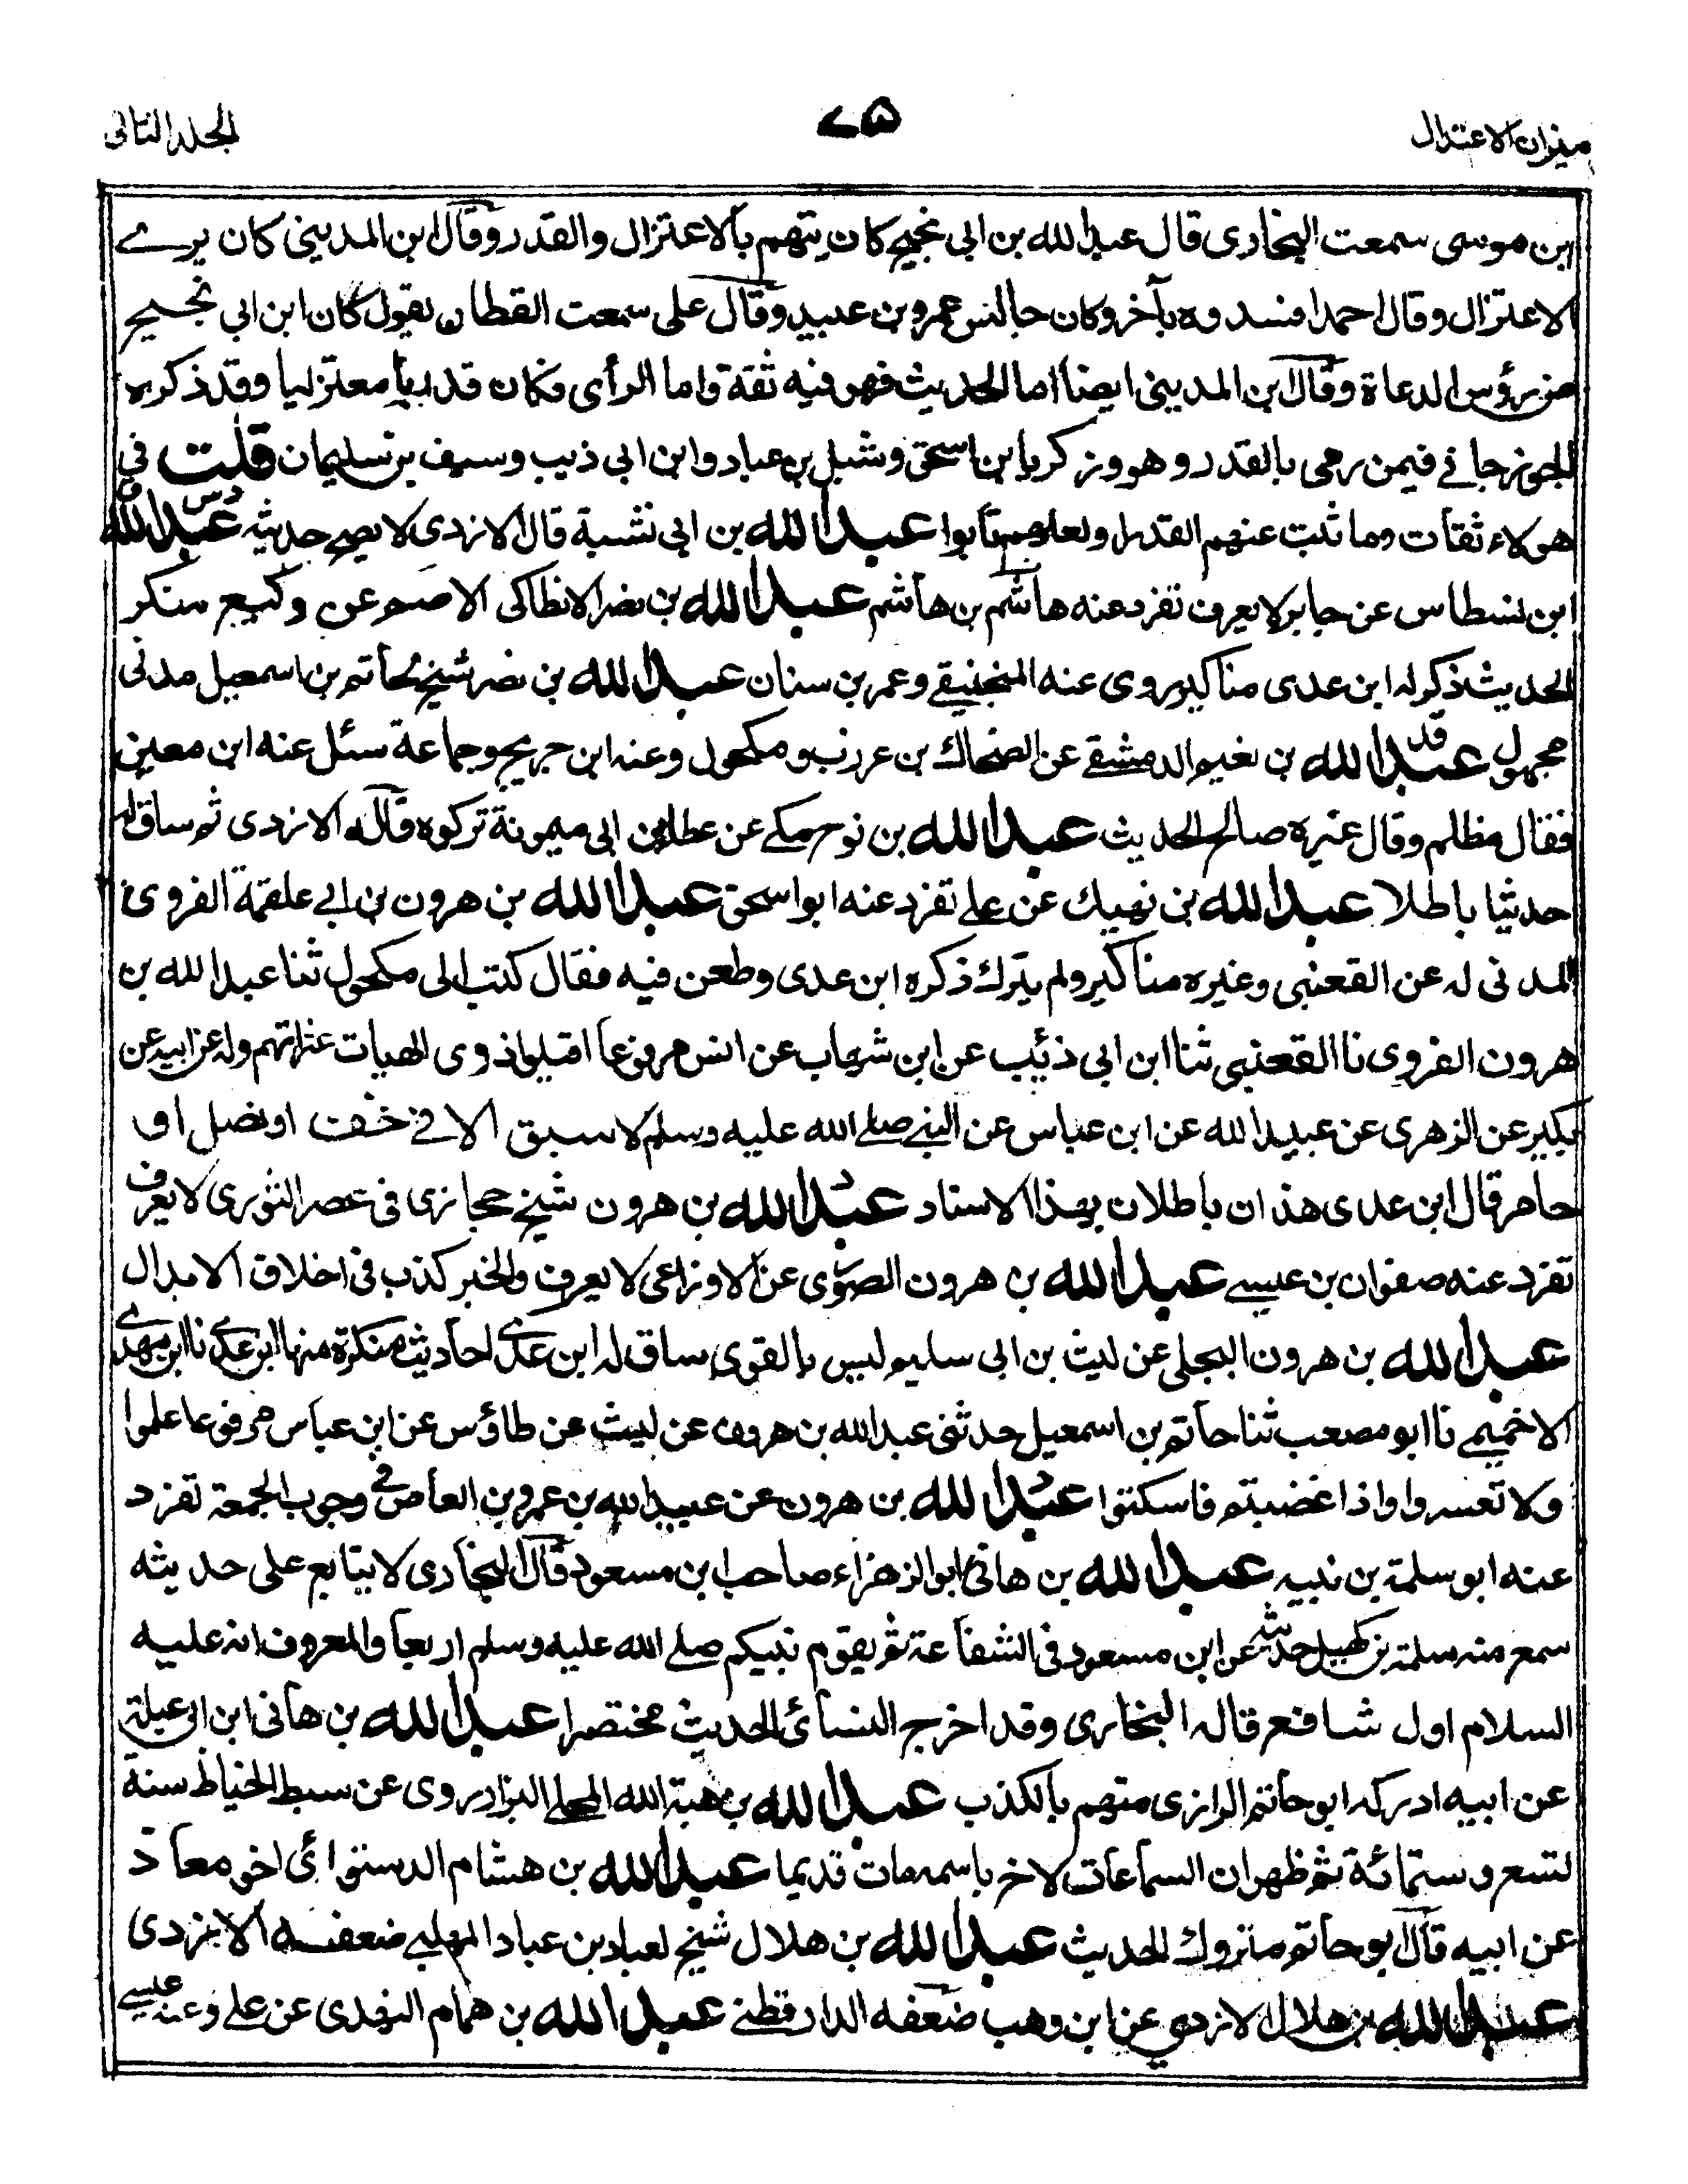 ميزان الاعتدال
٧٥
الجلد الثانى
ابن موسى سمعت البخارى قال عبد الله بن ابى نجيح كان يتهم بالاعتزال والقدر وقال ابن المدينى كان يرے
الاعتزال وقال احمد افسدوه بآخر وكان جالس عمرو بن عبيد وقال على سمعت القطان يقول كان ابن ابى نجيح
من رؤس الدعاة وقال ابن المدينى ايضا اما الحديث فهو فيه ثقة واما الرأى فكان قدريا معتزليا وقد ذكره
الجوزجانے فيمن رمى بالقدر و هو و زكريا بن اسحق وشبل بن عباد وابن ابى ذيب وسيف بن سليمان قلت فى
هولاء ثقات وما ثبت عنهم القدر او لعلهم تابوا عبد الله بن ابى نشبة قال الازدى لا يصح حديثه عبد الله
ابن نسطاس عن جابر لا يعرف تفرد عنه هاشم بن هاشم عبد الله بن نصر الانطاكى الاصم عن وكيع منكر
الحديث ذكر له ابن عدى مناكير روى عنه المنجنيقے وعمر بن سنان عبد الله بن نصر شيخ لحاتم بن اسمعيل مدنى
مجهول عبد الله بن نعيم الدمشقے عن الضحاك بن عرزب ومكحول وعنه ابن جريج وجماعة سئل عنه ابن معين
فقال مظلم وقال غيره صالح الحديث عبد الله بن نوح مكے عن عطاء بن ابى ميمونة تركوه قاله الازدى ثم ساق له
حديثا باطلا عبد الله بن نهيك عن علے تفرد عنه ابو اسحق عبد الله بن هرون بن ابى علقمة الفروى
المدنى له عن القعنبى وغيره مناكير ولم يترك ذكره ابن عدى وطعن فيه فقال كتب الى مكحول ثنا عبد الله بن
هرون الفروى نا القعنبى ثنا ابن ابى ذئب عن ابن شهاب عن انس مرفوعا اقيلوا ذوى الهيات عثراتهم وله عن ابيه عن
بكير عن الزهرى عن عبيد الله عن ابن عباس عن النبے صلے الله عليه وسلم لا سبق الا فے خف او نصل او
حافر قال ابن عدى هذان باطلان بهذا الاسناد عبد الله بن هرون شيخ حجازى فى عصر الثورى لا يعرف
تفرد عنه صفوان بن عيسے عبد الله بن هرون الصورى عن الاوزاعى لا يعرف والخبر كذب فى اخلاق الابدال
عبد الله بن هرون البجلى عن ليث بن ابى سليم ليس بالقوى ساق له ابن عدى احاديث منكرة منها ابن عدى نا ابن مهدى
الاخميمے نا ابو مصعب ثنا حاتم بن اسمعيل حدثنى عبد الله بن هرون عن ليث عن طاؤس عن ابن عباس مرفوعا علموا
ولا تعسروا واذا غضبتم فاسكتوا عبد الله بن هرون عن عبد الله بن عمرو بن العاص فى وجوب الجمعة تفرد
عنه ابو سلمة بن نبيه عبد الله بن هانئ ابو الزهراء صاحب ابن مسعود قال البخارى لا يتابع على حديثه
سمع منه سلمة بن كهيل حديثه عن ابن مسعود فى الشفاعة ثم يقوم نبيكم صلے الله عليه وسلم اربعا والمعروف انه عليه
السلام اول شافع قاله البخارى وقد اخرج النسائى الحديث مختصرا عبد الله بن هانى ابن ابى عبلة
عن ابيه ادركه ابو حاتم الرازى متهم بالكذب عبد الله بن هبة الله المحلے البزار روى عن سبط الخياط سنة
تسع وستمائة ثم ظهر ان السماعات لاخر باسمه مات قديما عبد الله بن هشام الدستوائى اخو معاذ
عن ابيه قال ابو حاتم متروك الحديث عبد الله بن هلال شيخ لعباد بن عباد المهلبے ضعفه الازدى
عبد الله بن هلال الازدى عن ابن وهب ضعفه الدارقطنے عبد الله بن همام النهدى عن علے وعنه عيسے